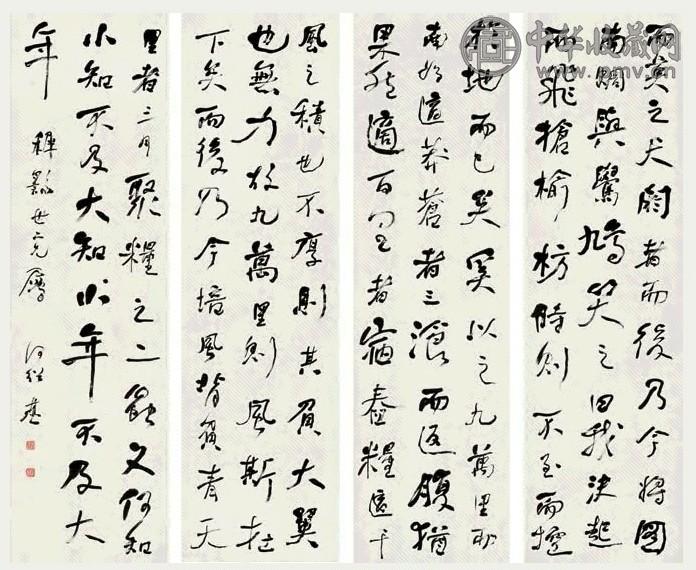 中华收藏网
而莫之夭閼者而後乃今將圖
南蜩與鷽鳩笑之曰我決起
而飛搶榆枋時則不至而控
於地而已矣奚以之九萬里而
南為適莽蒼者三湌而返腹猶
果然適百里者宿舂糧適千
風之積也不厚則其負大翼
也無力故九萬里則風斯在
下矣而後乃今培風背負青天
里者三月聚糧之二蟲又何知
小知不及大知小年不及大
年
世兄屬
何紹基